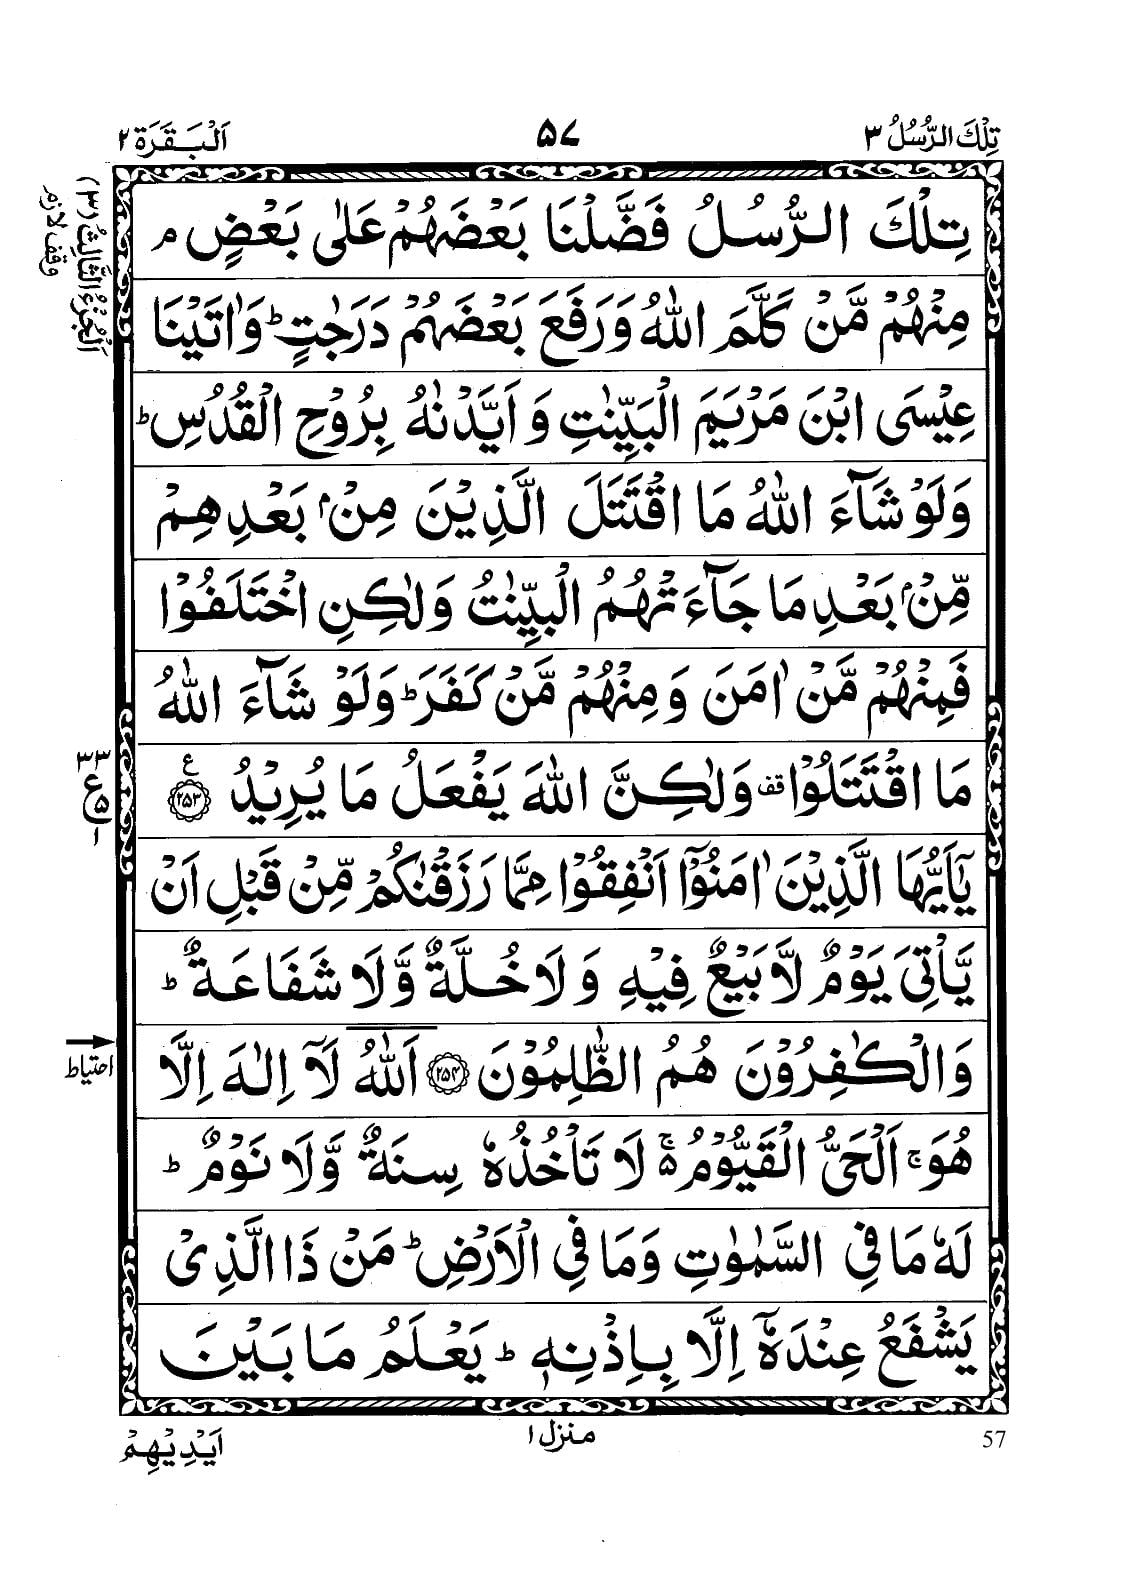 تِلْكَ الرُّسُلُ ٣
٥٧
اَلْبَقَرَة ٢
اَلْجُزْءُ الثَّالِثُ (٣)
وقف لازم
تِلْكَ الرُّسُلُ فَضَّلْنَا بَعْضَهُمْ عَلٰى بَعْضٍ ۘ
مِنْهُمْ مَّنْ كَلَّمَ اللّٰهُ وَرَفَعَ بَعْضَهُمْ دَرَجٰتٍ ؕ وَاٰتَيْنَا
عِيْسَى ابْنَ مَرْيَمَ الْبَيِّنٰتِ وَ اَيَّدْنٰهُ بِرُوْحِ الْقُدُسِ ؕ
وَلَوْ شَآءَ اللّٰهُ مَا اقْتَتَلَ الَّذِيْنَ مِنْۢ بَعْدِهِمْ
مِّنْۢ بَعْدِ مَا جَآءَتْهُمُ الْبَيِّنٰتُ وَلٰكِنِ اخْتَلَفُوْا
فَمِنْهُمْ مَّنْ اٰمَنَ وَ مِنْهُمْ مَّنْ كَفَرَ ؕ وَلَوْ شَآءَ اللّٰهُ
مَا اقْتَتَلُوْا قف وَلٰكِنَّ اللّٰهَ يَفْعَلُ مَا يُرِيْدُ ﴿٢٥٣﴾ ع
٣٣
ع ٥
١
يٰۤاَيُّهَا الَّذِيْنَ اٰمَنُوْۤا اَنْفِقُوْا مِمَّا رَزَقْنٰكُمْ مِّنْ قَبْلِ اَنْ
يَّاْتِىَ يَوْمٌ لَّا بَيْعٌ فِيْهِ وَ لَا خُلَّةٌ وَّلَا شَفَاعَةٌ ؕ
وَالْكٰفِرُوْنَ هُمُ الظّٰلِمُوْنَ ﴿٢٥٤﴾ اَللّٰهُ لَاۤ اِلٰهَ اِلَّا
احتیاط
هُوَ ۚ اَلْحَىُّ الْقَيُّوْمُ ۬ۚ لَا تَاْخُذُهٗ سِنَةٌ وَّلَا نَوْمٌ ؕ
لَهٗ مَا فِى السَّمٰوٰتِ وَمَا فِى الْاَرْضِ ؕ مَنْ ذَا الَّذِىْ
يَشْفَعُ عِنْدَهٗۤ اِلَّا بِاِذْنِهٖ ؕ يَعْلَمُ مَا بَيْنَ
57
منزل ١
اَيْدِيْهِمْ